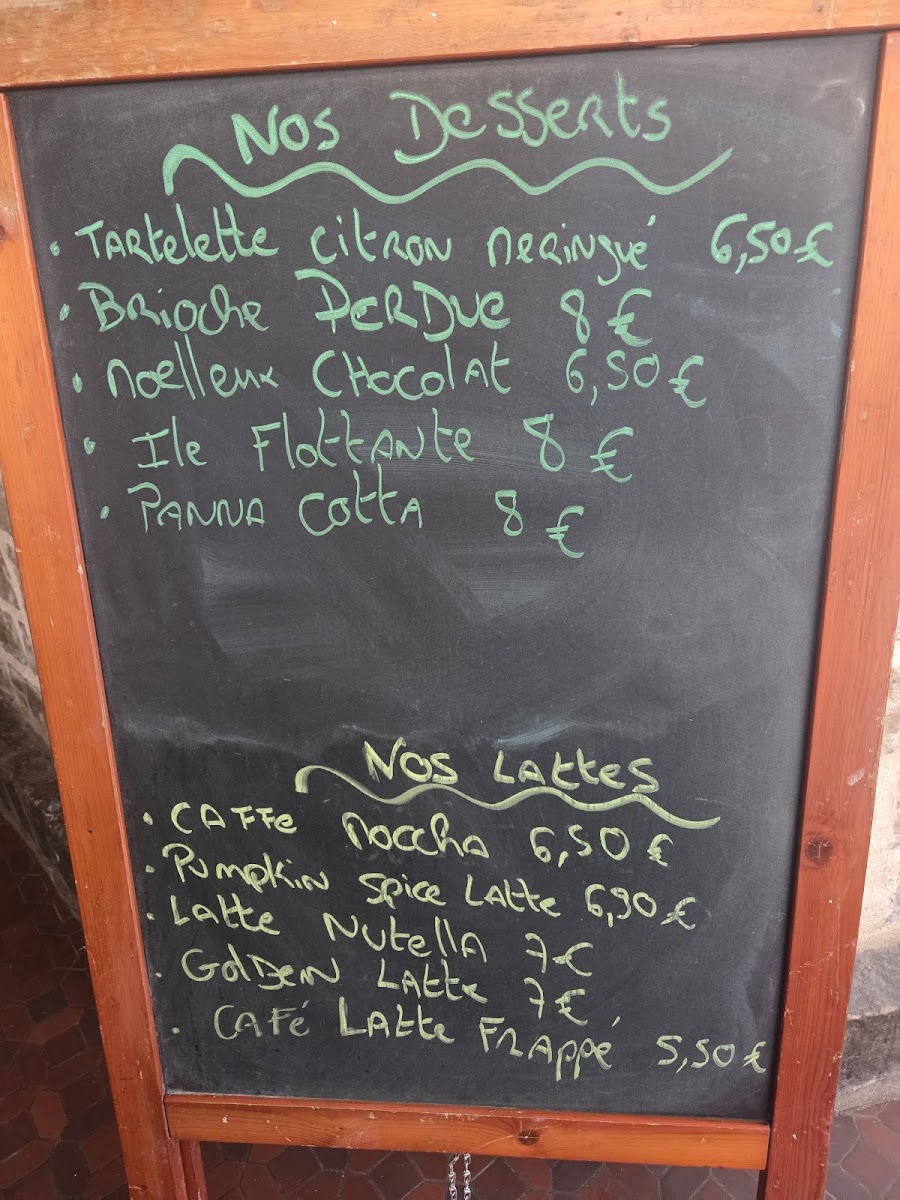 Nos Desserts
• Tartelette citron meringué 6,50 €
• Brioche Perdue 8 €
• Moelleux Chocolat 6,50 €
• Ile Flottante 8 €
• Panna Cotta 8 €
Nos Lattes
• Caffe Moccha 6,50 €
• Pumpkin Spice Latte 6,90 €
• Latte Nutella 7 €
• Golden Latte 7 €
• Café Latte Frappé 5,50 €